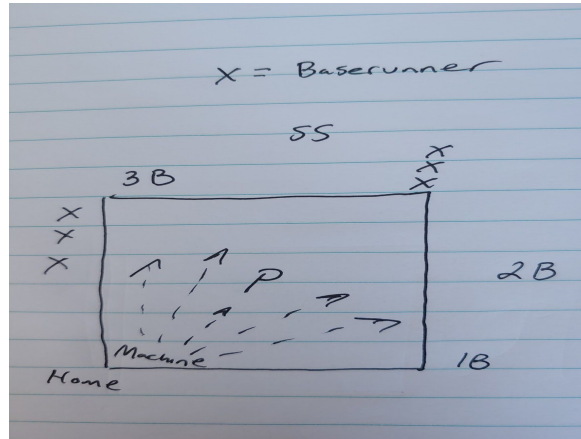 X = Baserunner
SS
X
X
X
3B
X
X
X
P
2B
Machine
1B
Home